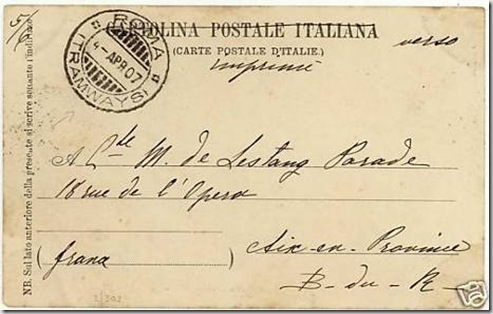 CARTOLINA POSTALE ITALIANA
(CARTE POSTALE D'ITALIE.)
verso
imprimé
ROMA
4-APR 07
(TRAMWAYS)
A Cte M. de Lestang Parade
18 rue de l'Opera
Aix-en-Province
(france)
B-du-R-
NB. Sul lato anteriore della presente si scrive soltanto l'indirizzo.
ebY